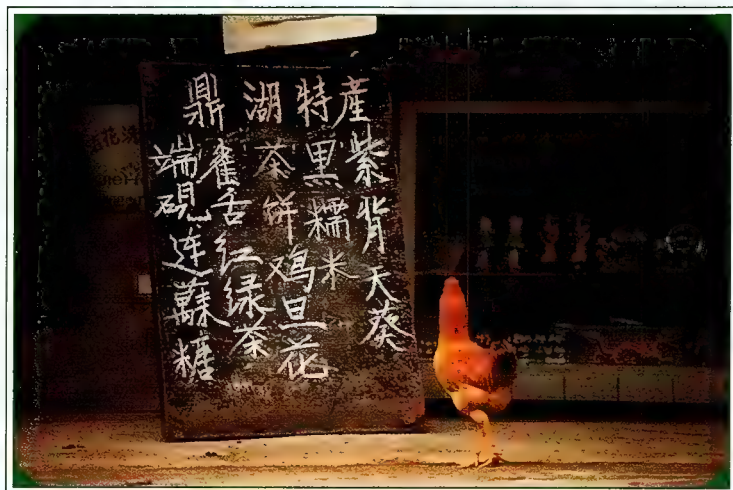 鼎湖特産
紫背天葵
黑糯米
茶饼
鸡旦花
雀舌红绿茶
端硯
连蘇糖